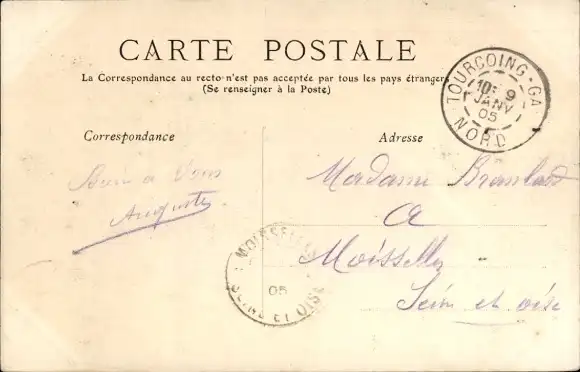 CARTE POSTALE
La Correspondance au recto n'est pas acceptée par tous les pays étrangers
(Se renseigner à la Poste)
TOURCOING-GA
10: 9
JANV
05
NORD
Correspondance
Adresse
a Vous
Auguste
Madame
a
Moisselles
Seine et oise
MOISSELLES
05
SEINE ET OISE